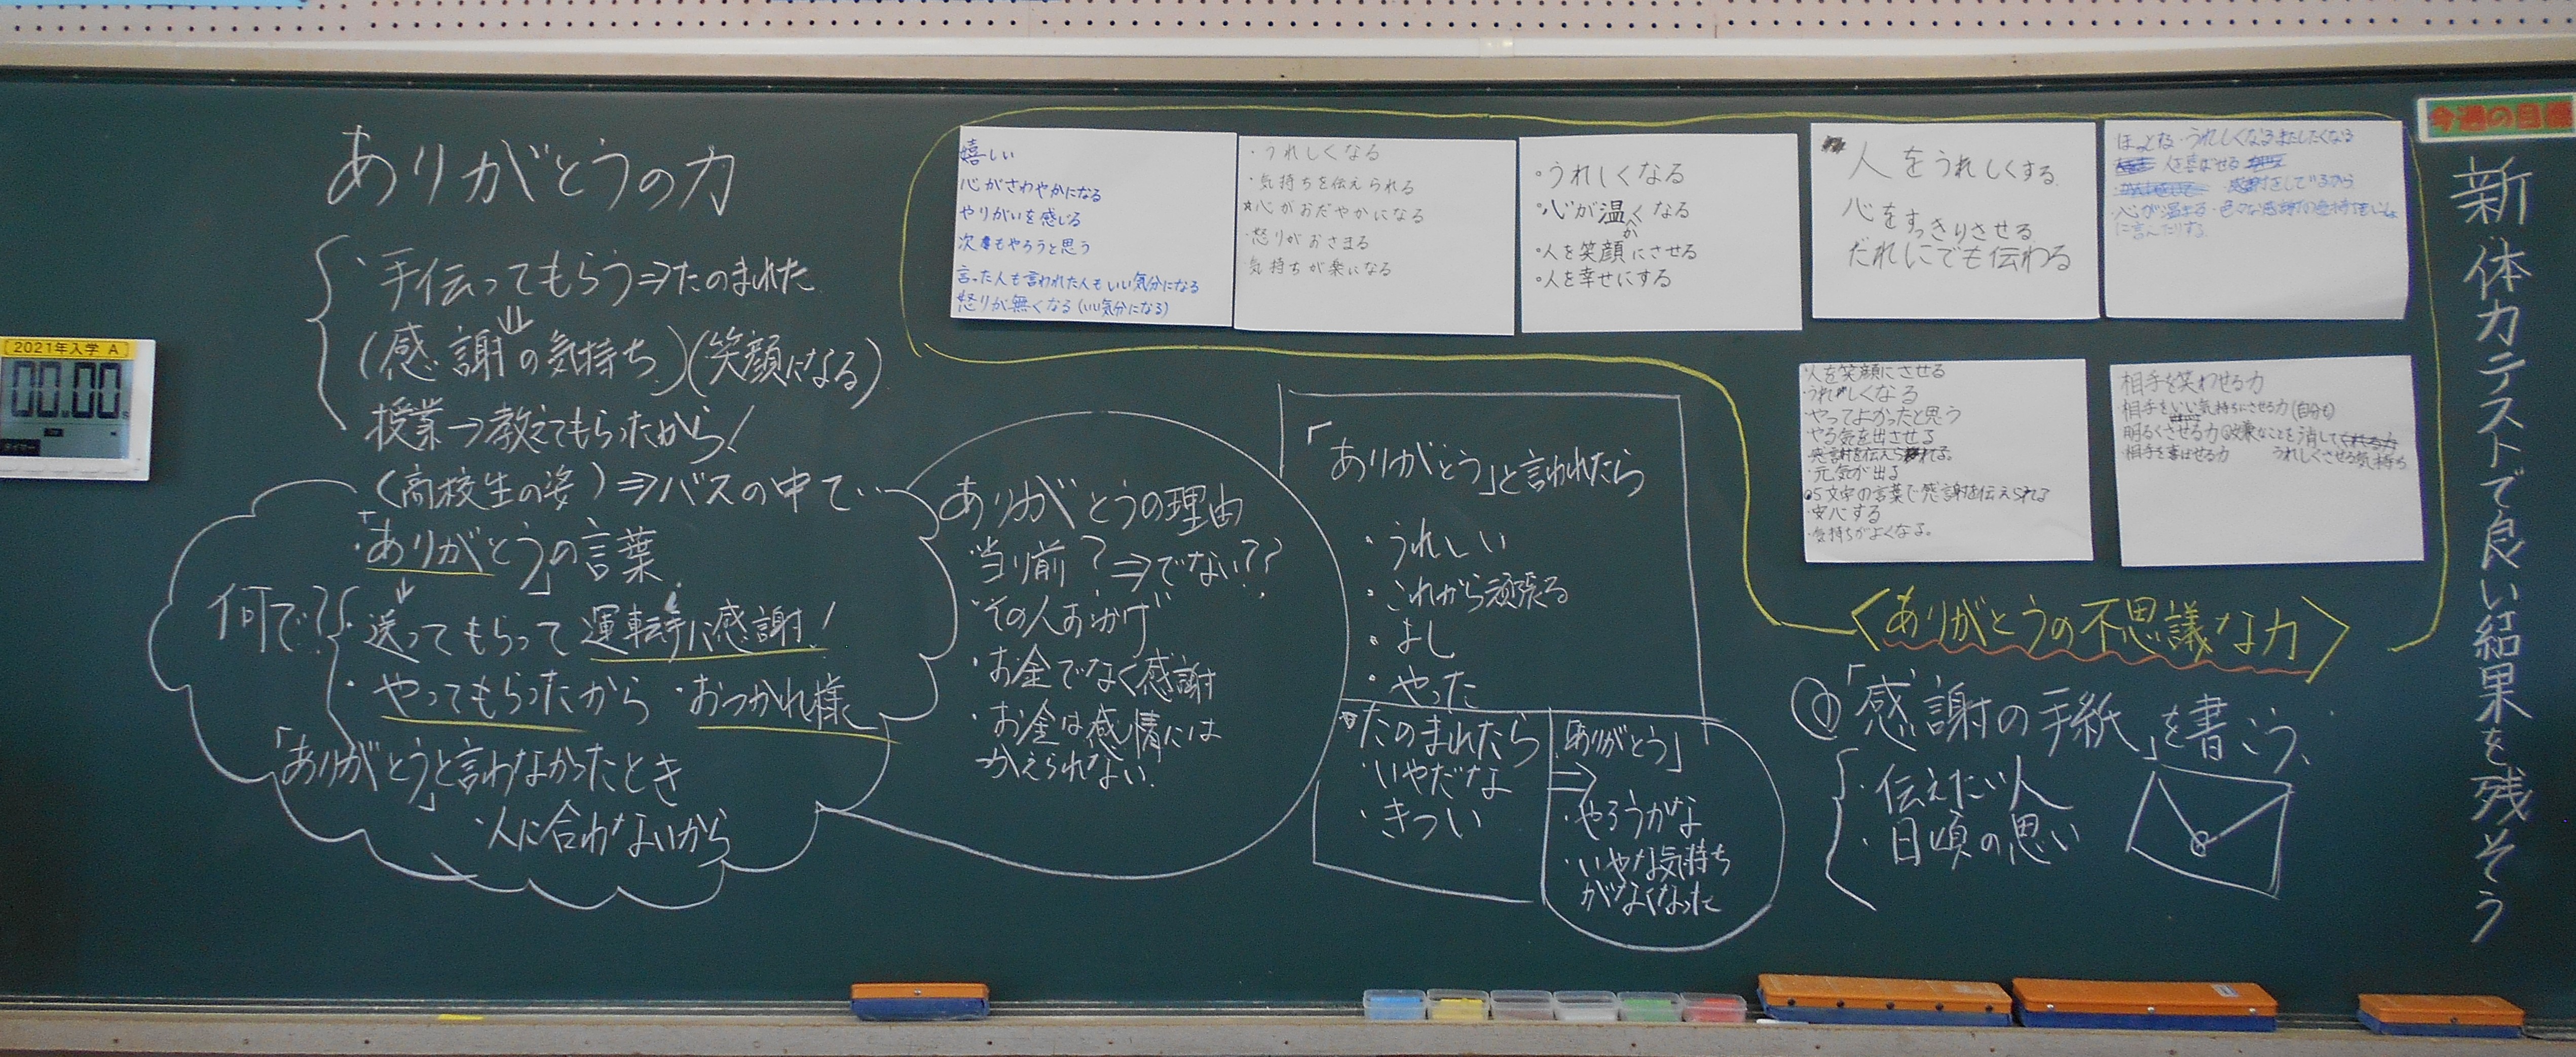 ありがとうの力
・手伝ってもらう⇒たのまれた
(感謝の気持ち)(笑顔になる)
授業→教えてもらったから!
(高校生の姿)⇒バスの中で…
・「ありがとう」の言葉
何で?
・送ってもらって運転手に感謝!
・やってもらったから ・おつかれ様
「ありがとう」と言わなかったとき
・人に合わないから
ありがとうの理由
当り前?⇒でない??
・その人おかげ
・お金でなく感謝
・お金は感情には
かえられない。
「ありがとう」と言われたら
・うれしい
・これから頑張る
・よし
・やった
たのまれたら
・いやだな
・きつい
「ありがとう」
⇒
・やろうかな
・いやな気持ち
がなくなった
嬉しい
心がさわやかになる
やりがいを感じる
次もやろうと思う
言った人も言われた人もいい気分になる
怒りが無くなる(いい気分になる)
・うれしくなる
・気持ちを伝えられる
☆心がおだやかになる
・怒りがおさまる
気持ちが楽になる
・うれしくなる
・心が温かくなる
・人を笑顔にさせる
・人を幸せにする
人をうれしくする
心をすっきりさせる
だれにでも伝わる
ほっとする・うれしくなるまたしたくなる
人を喜ばせる
・感謝をしているから
・心が温まる・色々な感謝の気持ち
に言えたりする
・人を笑顔にさせる
・うれしくなる
・やってよかったと思う
・やる気を出させる
・感謝を伝えられる。
・元気が出る
・5文字の言葉で感謝を伝えられる
・安心する
・気持ちがよくなる。
相手を笑わせる力
相手をいい気持ちにさせる力(自分も)
明るくさせる力 嫌なことを消して
相手を喜ばせる力 うれしくさせる気持ち
〈ありがとうの不思議な力〉
「感謝の手紙」を書こう、
・伝えたい人
・日頃の思い
今週の目標
新体力テストで良い結果を残そう
2021年入学 A
00.00